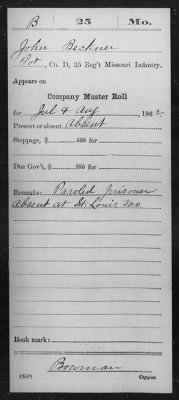 B 25 Mo.
John Beckner
Pvt, Co. D, 25 Reg't Missouri Infantry.
Appears on
Company Muster Roll
for Jul & Aug, 1862.
Present or absent Absent
Stoppage, $ 100 for
Due Gov't, $ 100 for
Remarks: Paroled prisoner
absent at St. Louis, Mo.
Book mark:
Bowman
(858) Copyist.